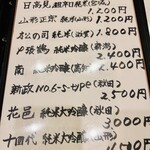 日高見 超辛口純米(宮城)
1,200円
山形正宗 純米(山形)
1,200円
1,800円
〆張鶴 純米吟醸(新潟)
2,400円
南 純米吟醸(高知)
2,400円
新政 No.6 S-type(秋田)
2,500円
花邑 純米大吟醸(秋田)
3000円
十四代 純米大吟醸(山形)